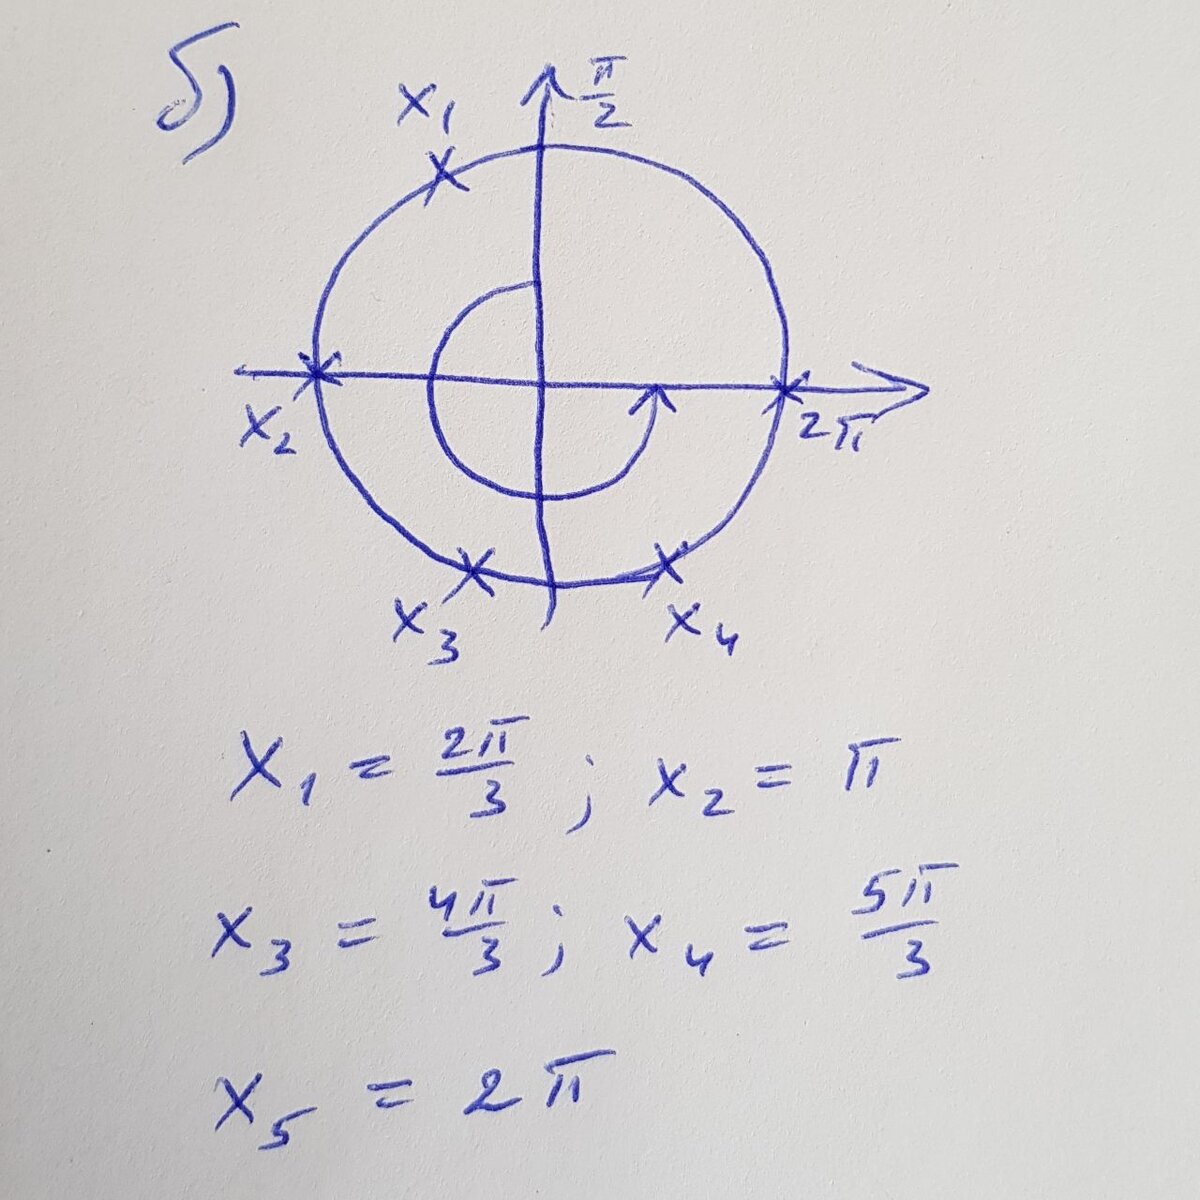 б)
π/2
x₁
x₂
2π
x₃
x₄
x₁ = 2π/3 ; x₂ = π
x₃ = 4π/3 ; x₄ = 5π/3
x₅ = 2π